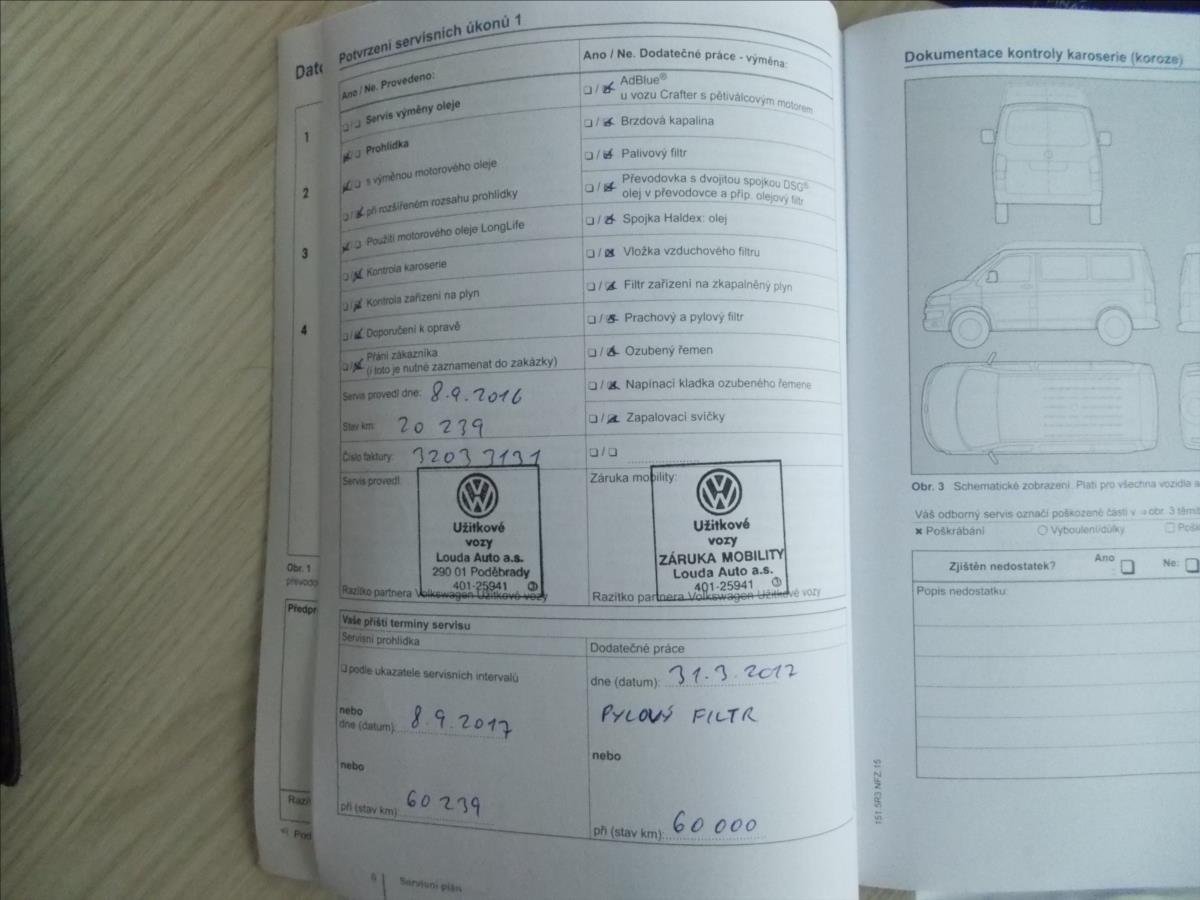 Potvrzení servisních úkonů 1
Ano / Ne. Provedeno:
❏/❏ Servis výměny oleje
❏/❏ Prohlídka
❏/❏ s výměnou motorového oleje
❏/❏ při rozšířeném rozsahu prohlídky
❏/❏ Použití motorového oleje LongLife
❏/❏ Kontrola karoserie
❏/❏ Kontrola zařízení na plyn
❏/❏ Doporučení k opravě
❏/❏ Přání zákazníka
(i toto je nutné zaznamenat do zakázky)
Servis provedl dne: 8.9.2016
Stav km: 20 239
Číslo faktury: 32033131
Servis provedl:
Užitkové
vozy
Louda Auto a.s.
290 01 Poděbrady
401-25941
Razítko partnera Volkswagen Užitkové vozy
Ano / Ne. Dodatečné práce - výměna:
❏/❏ AdBlue®
u vozu Crafter s pětiválcovým motorem
❏/❏ Brzdová kapalina
❏/❏ Palivový filtr
❏/❏ Převodovka s dvojitou spojkou DSG®
olej v převodovce a příp. olejový filtr
❏/❏ Spojka Haldex: olej
❏/❏ Vložka vzduchového filtru
❏/❏ Filtr zařízení na zkapalněný plyn
❏/❏ Prachový a pylový filtr
❏/❏ Ozubený řemen
❏/❏ Napínací kladka ozubeného řemene
❏/❏ Zapalovací svíčky
❏/❏
Záruka mobility:
Užitkové
vozy
ZÁRUKA MOBILITY
Louda Auto a.s.
401-25941
Razítko partnera Volkswagen Užitkové vozy
Vaše příští termíny servisu
Servisní prohlídka
❏ podle ukazatele servisních intervalů
nebo
dne (datum): 8.9.2017
nebo
při (stav km): 60 239
Dodatečné práce
dne (datum): 31.3.2017
PYLOVÝ FILTR
nebo
při (stav km): 60 000
6 Servisní plán
1
2
3
4
Obr. 1
Dokumentace kontroly karoserie (koroze)
Obr. 3 Schematické zobrazení. Platí pro všechna vozidla a
Váš odborný servis označí poškozené části v ⇒ obr. 3
✖ Poškrábání ○ Vyboulení/důlky
Zjištěn nedostatek? Ano : ❏ Ne: ❏
Popis nedostatku:
151.5R3.NFZ.15